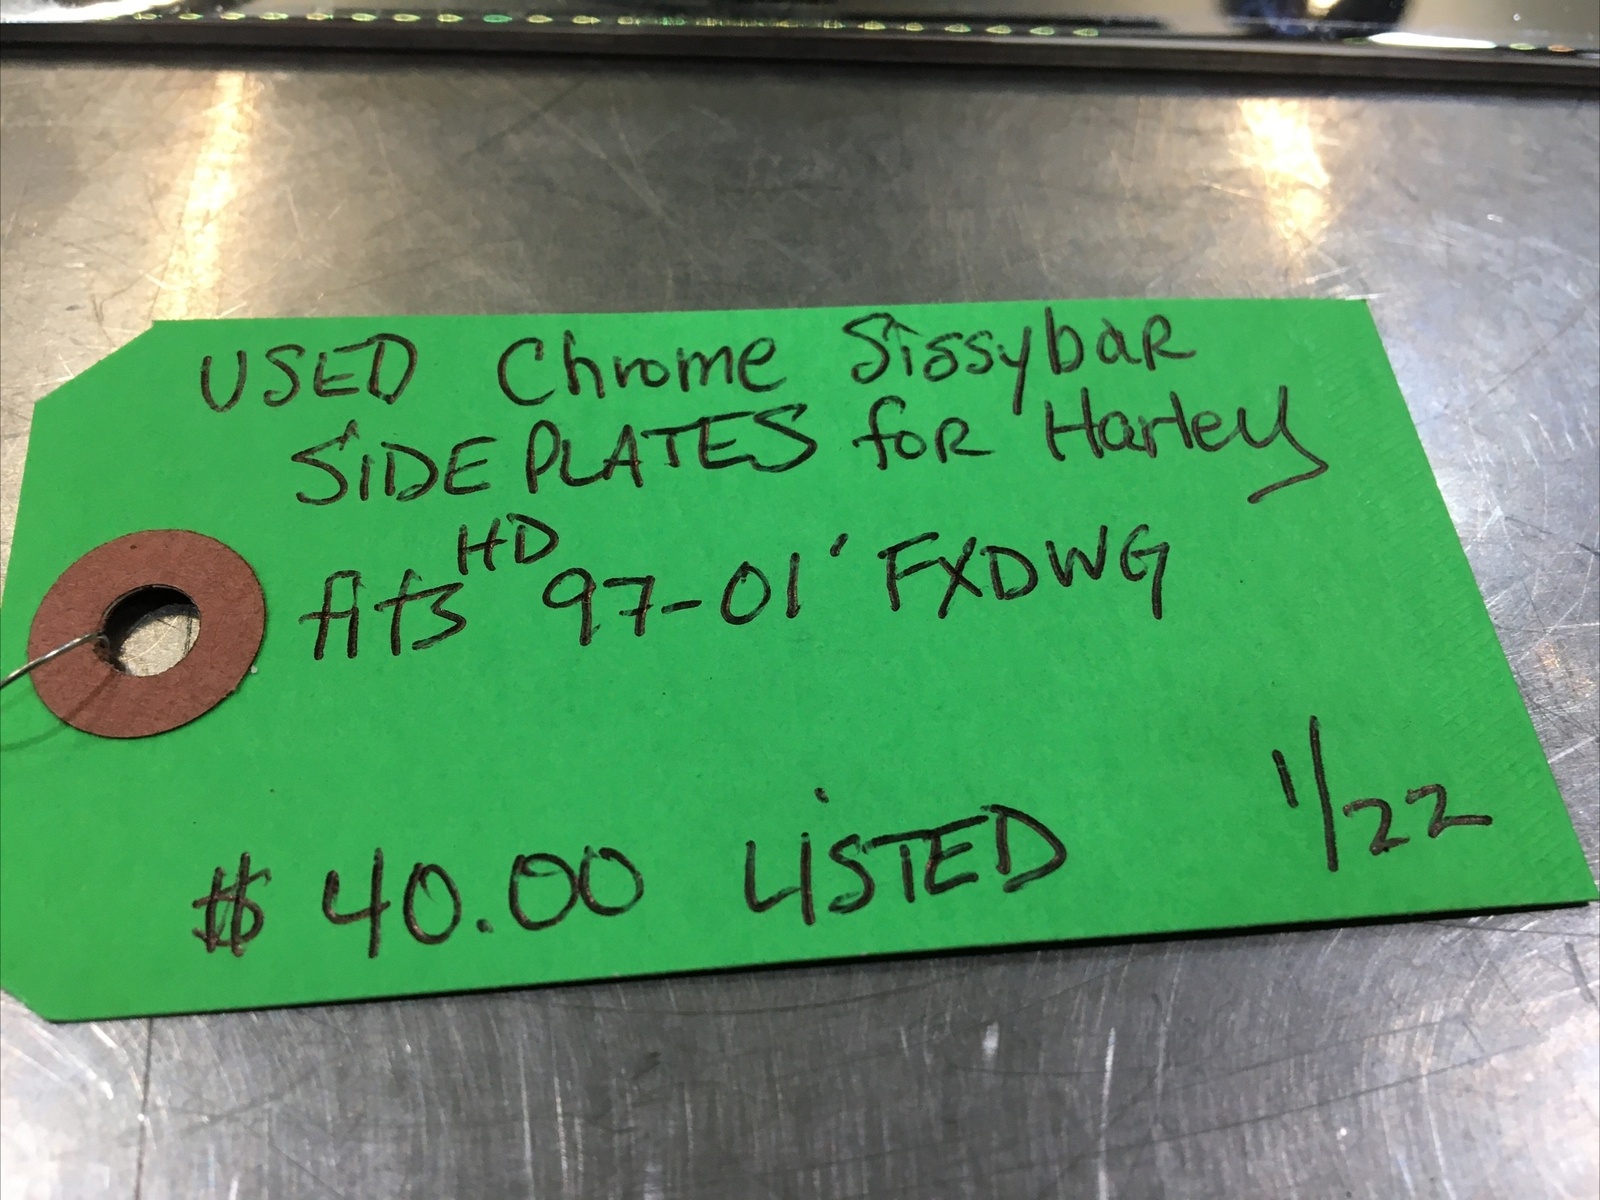 USED Chrome Sissybar
SIDEPLATES for Harley
fits HD 97-01' FXDWG
$40.00 LISTED 1/22